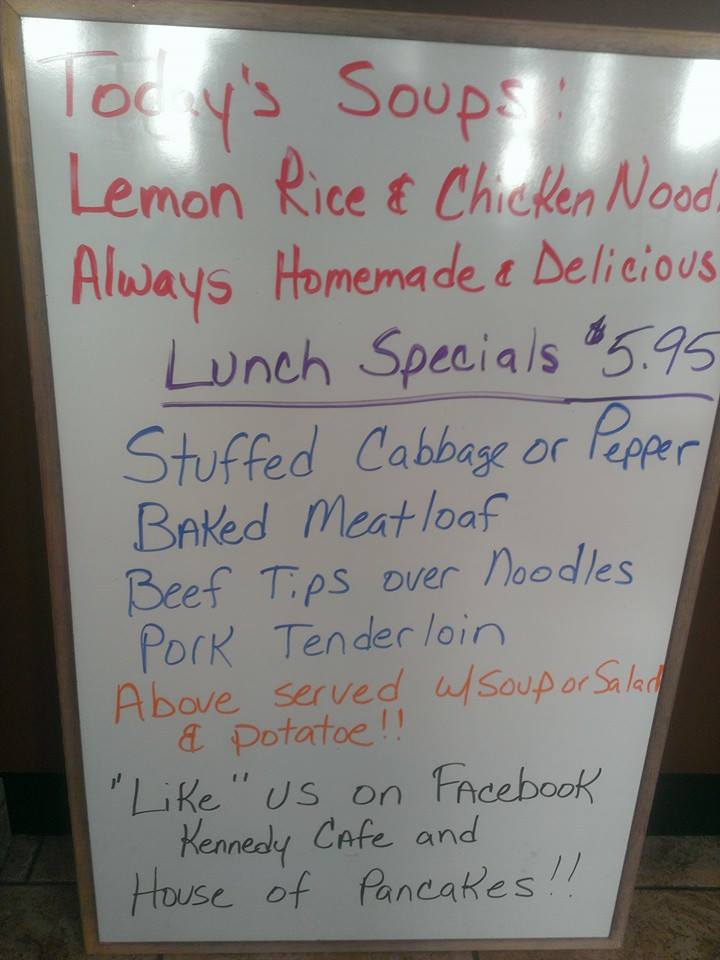 Today's Soups:
Lemon Rice & Chicken Nood
Always Homemade & Delicious
Lunch Specials $5.95
Stuffed Cabbage or Pepper
Baked Meatloaf
Beef Tips over Noodles
Pork Tenderloin
Above served w/ Soup or Salad
& potatoe!!
"Like" us on Facebook
Kennedy Cafe and
House of Pancakes!!